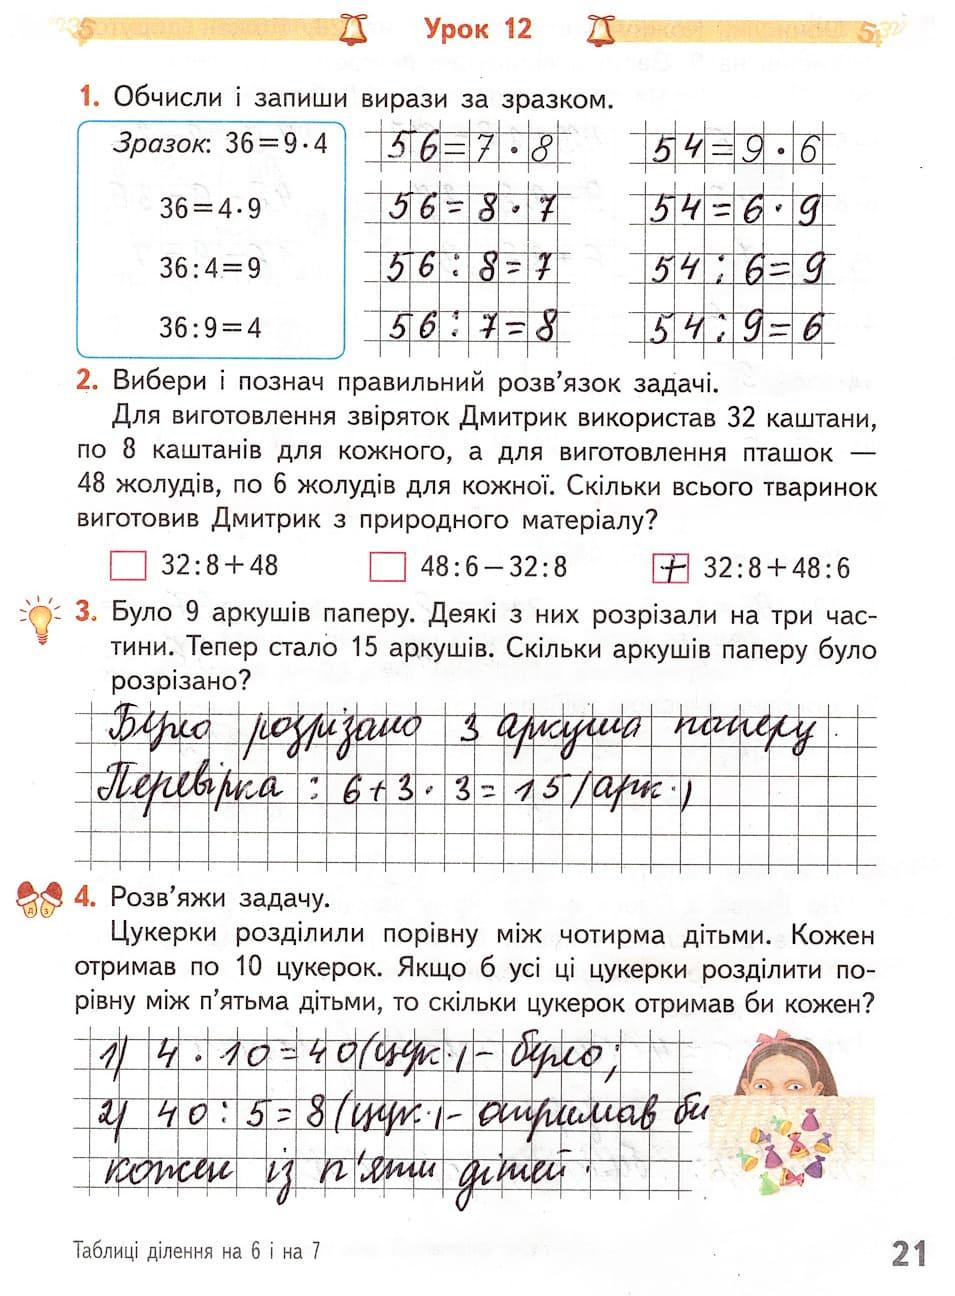 Урок 12
1. Обчисли і запиши вирази за зразком.
Зразок: 36=9·4
36=4·9
36:4=9
36:9=4
56=7·8
56=8·7
56:8=7
56:7=8
54=9·6
54=6·9
54:6=9
54:9=6
2. Вибери і познач правильний розв'язок задачі.
Для виготовлення звіряток Дмитрик використав 32 каштани,
по 8 каштанів для кожного, а для виготовлення пташок —
48 жолудів, по 6 жолудів для кожної. Скільки всього тваринок
виготовив Дмитрик з природного матеріалу?
32:8+48 48:6−32:8 + 32:8+48:6
3. Було 9 аркушів паперу. Деякі з них розрізали на три час-
тини. Тепер стало 15 аркушів. Скільки аркушів паперу було
розрізано?
Було розрізано 3 аркуша паперу.
Перевірка : 6+3·3=15(арк.)
4. Розв'яжи задачу.
Цукерки розділили порівну між чотирма дітьми. Кожен
отримав по 10 цукерок. Якщо б усі ці цукерки розділити по-
рівну між п'ятьма дітьми, то скільки цукерок отримав би кожен?
1) 4·10=40(цук.)- було;
2) 40:5=8(цук.)- отримав би
кожен із п'яти дітей.
Таблиці ділення на 6 і на 7
21